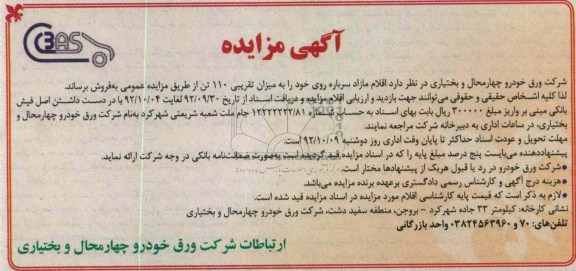 CBAS
آگهی مزایده
شرکت ورق خودرو چهارمحال و بختیاری در نظر دارد اقلام مازاد سرباره روی خود را به میزان تقریبی ۱۱۰ تن از طریق مزایده عمومی به‌فروش برساند.
لذا کلیه اشخاص حقیقی و حقوقی می‌توانند جهت بازدید و ارزیابی اقلام مزایده و دریافت اسناد از تاریخ ۹۲/۰۹/۳۰ لغایت ۹۲/۱۰/۰۴ با در دست داشتن اصل فیش
بانکی مبنی بر واریز مبلغ ۳۰۰۰۰۰ ریال بابت بهای اسناد به حساب شماره ۱۲۲۲۲۲۲۲/۸۱ جام ملت شعبه شریعتی شهرکرد به‌نام شرکت ورق خودرو چهارمحال و
بختیاری، در ساعات اداری به دبیرخانه شرکت مراجعه نمایند.
مهلت تحویل و عودت اسناد حداکثر تا پایان وقت اداری روز دوشنبه ۹۲/۱۰/۰۹ است.
پیشنهاددهنده می‌بایست پنج درصد مبلغ پایه را که در اسناد مزایده قید گردیده است به‌صورت ضمانت‌نامه بانکی در وجه شرکت ارائه نماید.
*شرکت ورق خودرو در رد یا قبول هریک از پیشنهادها مختار است.
*هزینه درج آگهی و کارشناس رسمی دادگستری برعهده برنده مزایده می‌باشد.
*لازم به ذکر است که قیمت پایه کارشناسی اقلام مورد مزایده در اسناد مزایده قید شده است.
نشانی کارخانه: کیلومتر ۳۳ جاده شهرکرد - بروجن، منطقه سفید دشت، شرکت ورق خودرو چهارمحال و بختیاری
تلفن‌های: ۷۰ و ۰۳۸۲۴۵۶۳۹۶۰ واحد بازرگانی
ارتباطات شرکت ورق خودرو چهارمحال و بختیاری